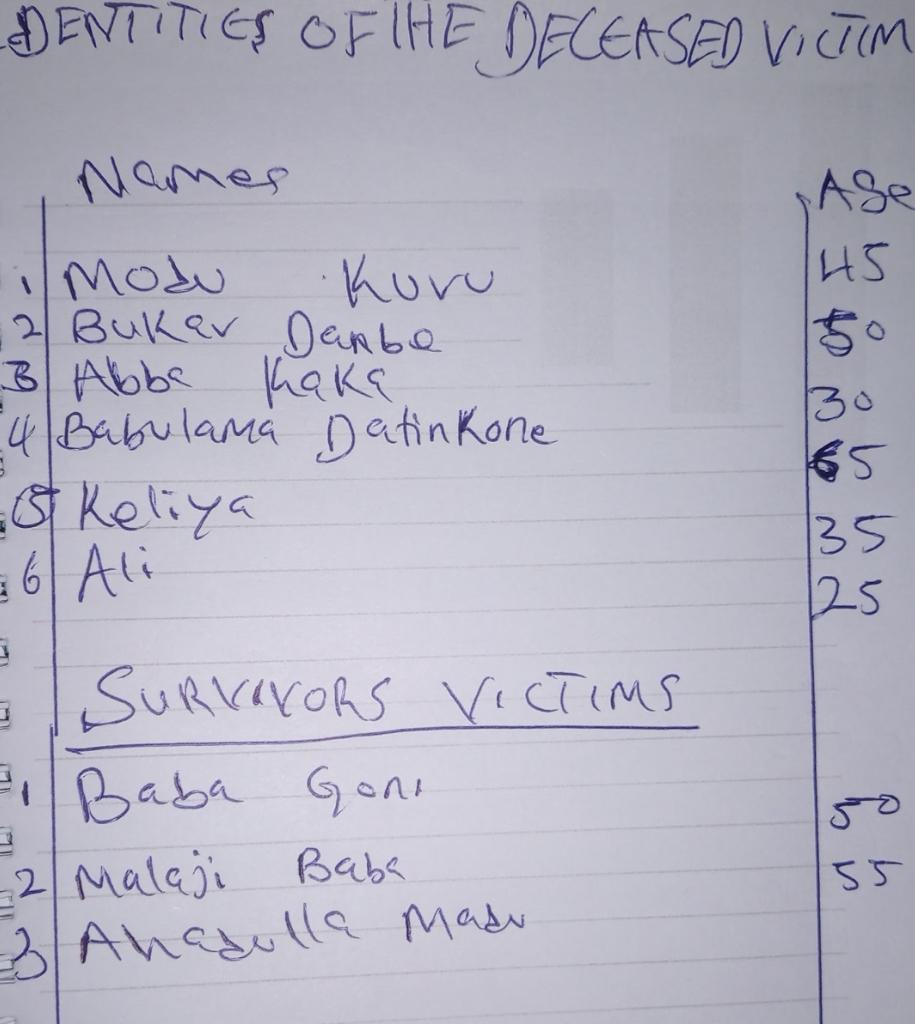 IDENTITIES OF THE DECEASED VICTIM
Names Age
1 Modu Kuru 45
2 Bukar Danbe 50
3 Abba Kaka 30
4 Babulama Datinkone 65
5 Keliya 35
6 Ali 25
SURVIVORS VICTIMS
1 Baba Goni 50
2 Malaji Baba 55
3 Madu